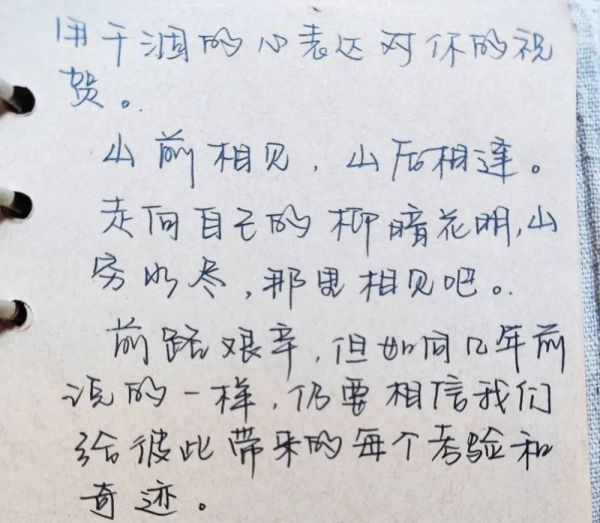 用干涸的心表达对你的祝
贺。
山前相见，山后相逢。
走向自己的柳暗花明，山
穷水尽，那里相见吧。
前路艰辛，但如同几年前
说的一样，仍要相信我们
给彼此带来的每个考验和
奇迹。